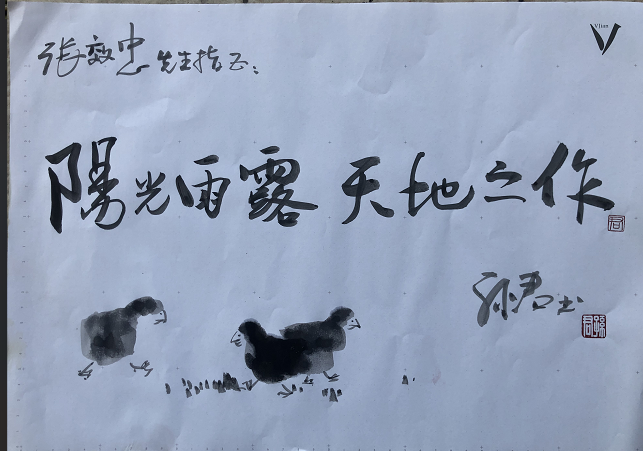 張效忠先生指正：
Vlian
陽光雨露 天地之作
孫君书